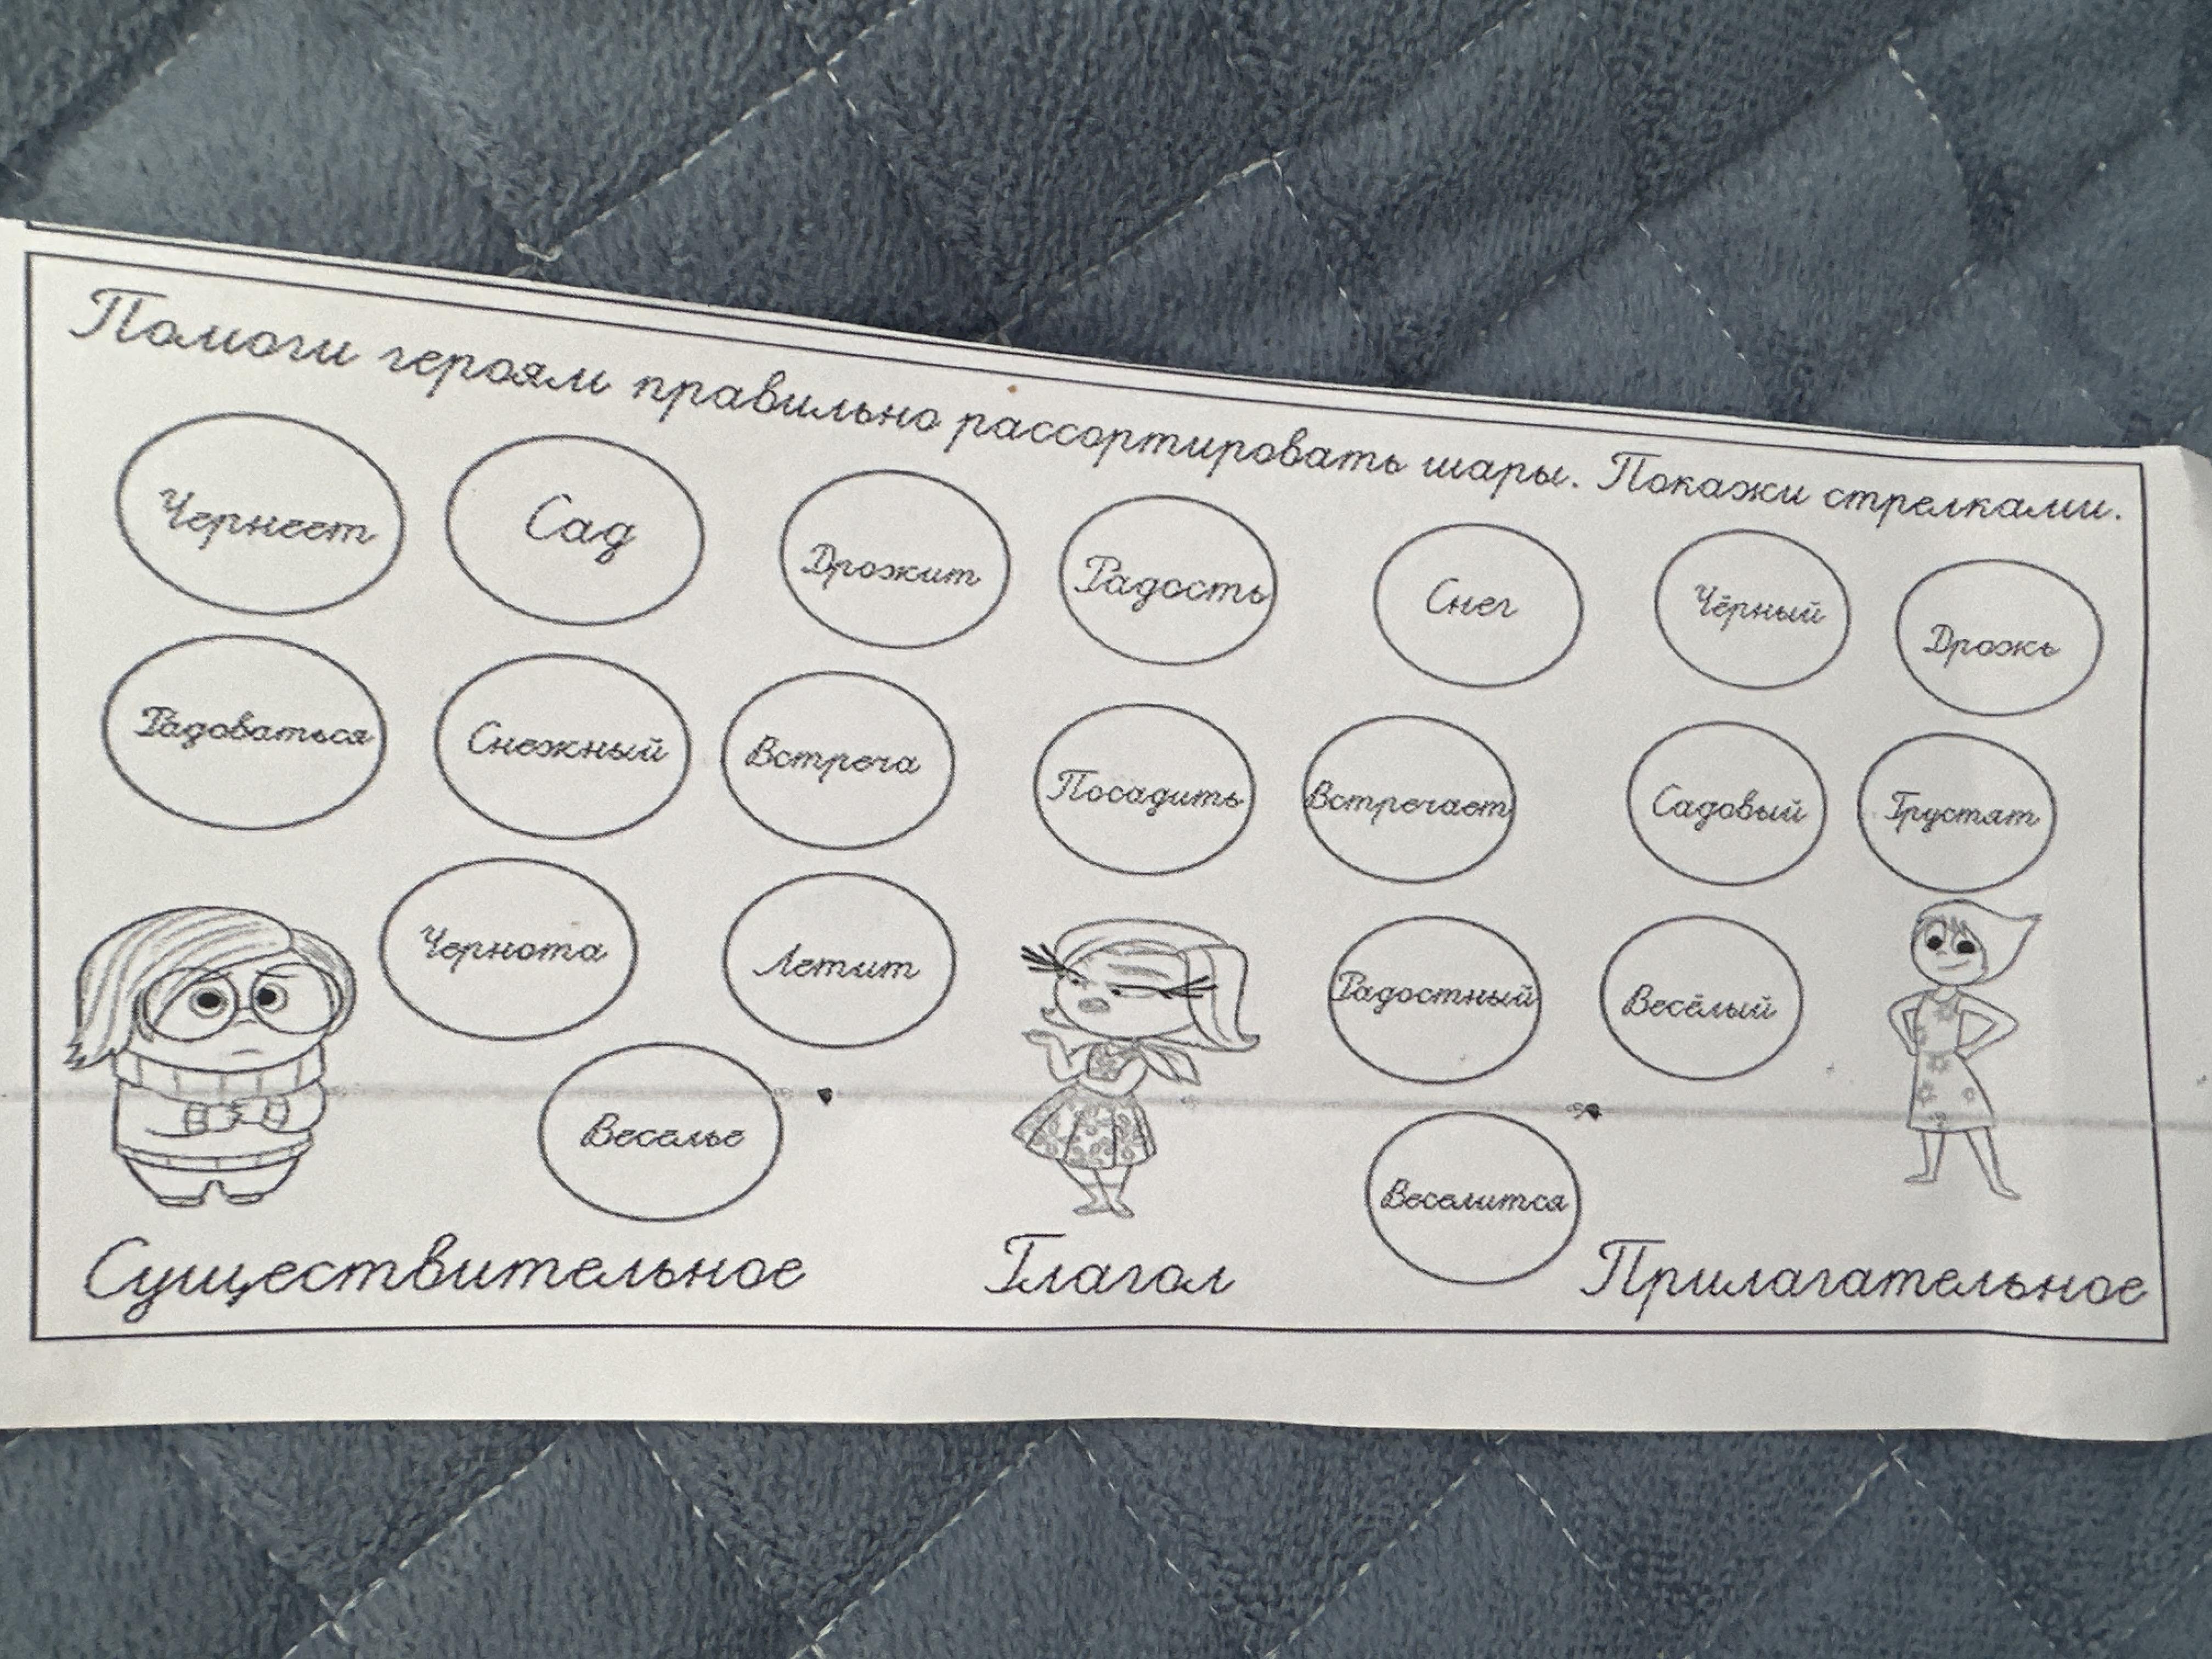 Помоги героям правильно рассортировать шары. Покажи стрелками.
Чернеет Сад Дрожит Радость Снег Чёрный Дрожь
Радоваться Снежный Встреча Посадить Встречает Садовый Грустят
Чернота Летит Радостный Весёлый
Веселье Веселится
Существительное Глагол Прилагательное